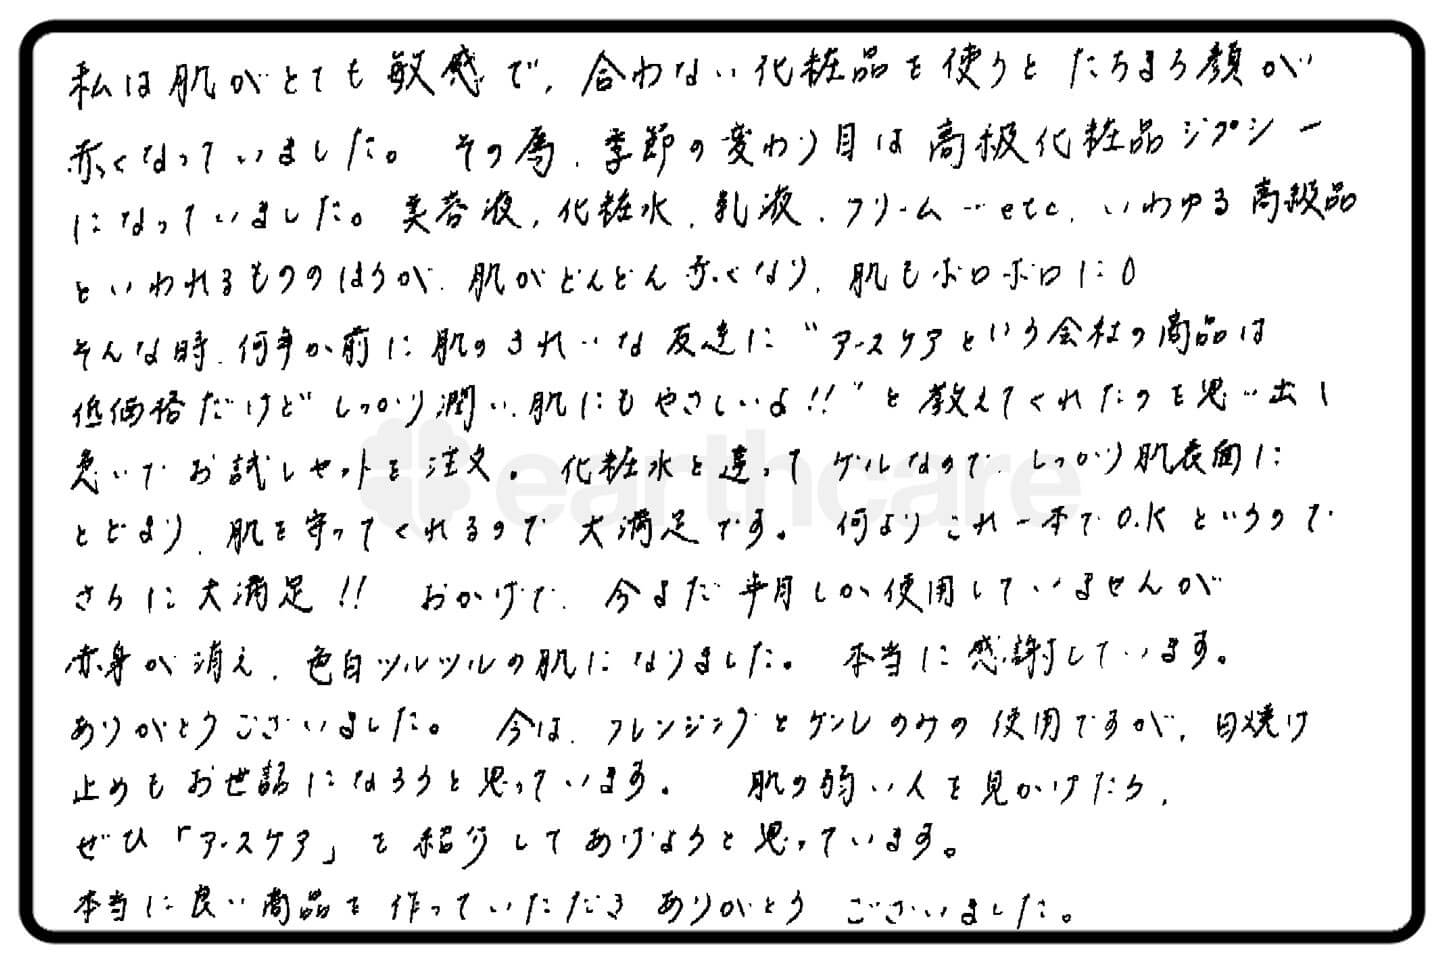 私は肌がとても敏感で、合わない化粧品を使うとたちまち顔が
赤くなっていました。その為、季節の変わり目は高級化粧品ジプシー
になっていました。美容液、化粧水、乳液、クリーム…etc、いわゆる高級品
といわれるもののほうが、肌がどんどん赤くなり、肌もボロボロに。
そんな時、何年か前に肌のきれいな友達に"アースケアという会社の商品は
低価格だけど しっかり潤い、肌にもやさしいよ!!"と教えてくれたのを思い出し
急いでお試しセットを注文。化粧水と違ってゲルなので、しっかり肌表面に
とどまり、肌を守ってくれるので大満足です。何よりこれ一本でO.Kというので
さらに大満足!! おかげで、今まだ半月しか使用していませんが
赤身が消え、色白ツルツルの肌になりました。本当に感謝しています。
ありがとうございました。今は、クレンジングとゲルのみの使用ですが、日焼け
止めもお世話になろうと思っています。肌の弱い人を見かけたら、
ぜひ「アースケア」を紹介してあげようと思っています。
本当に良い商品を作っていただきありがとうございました。
earthcare